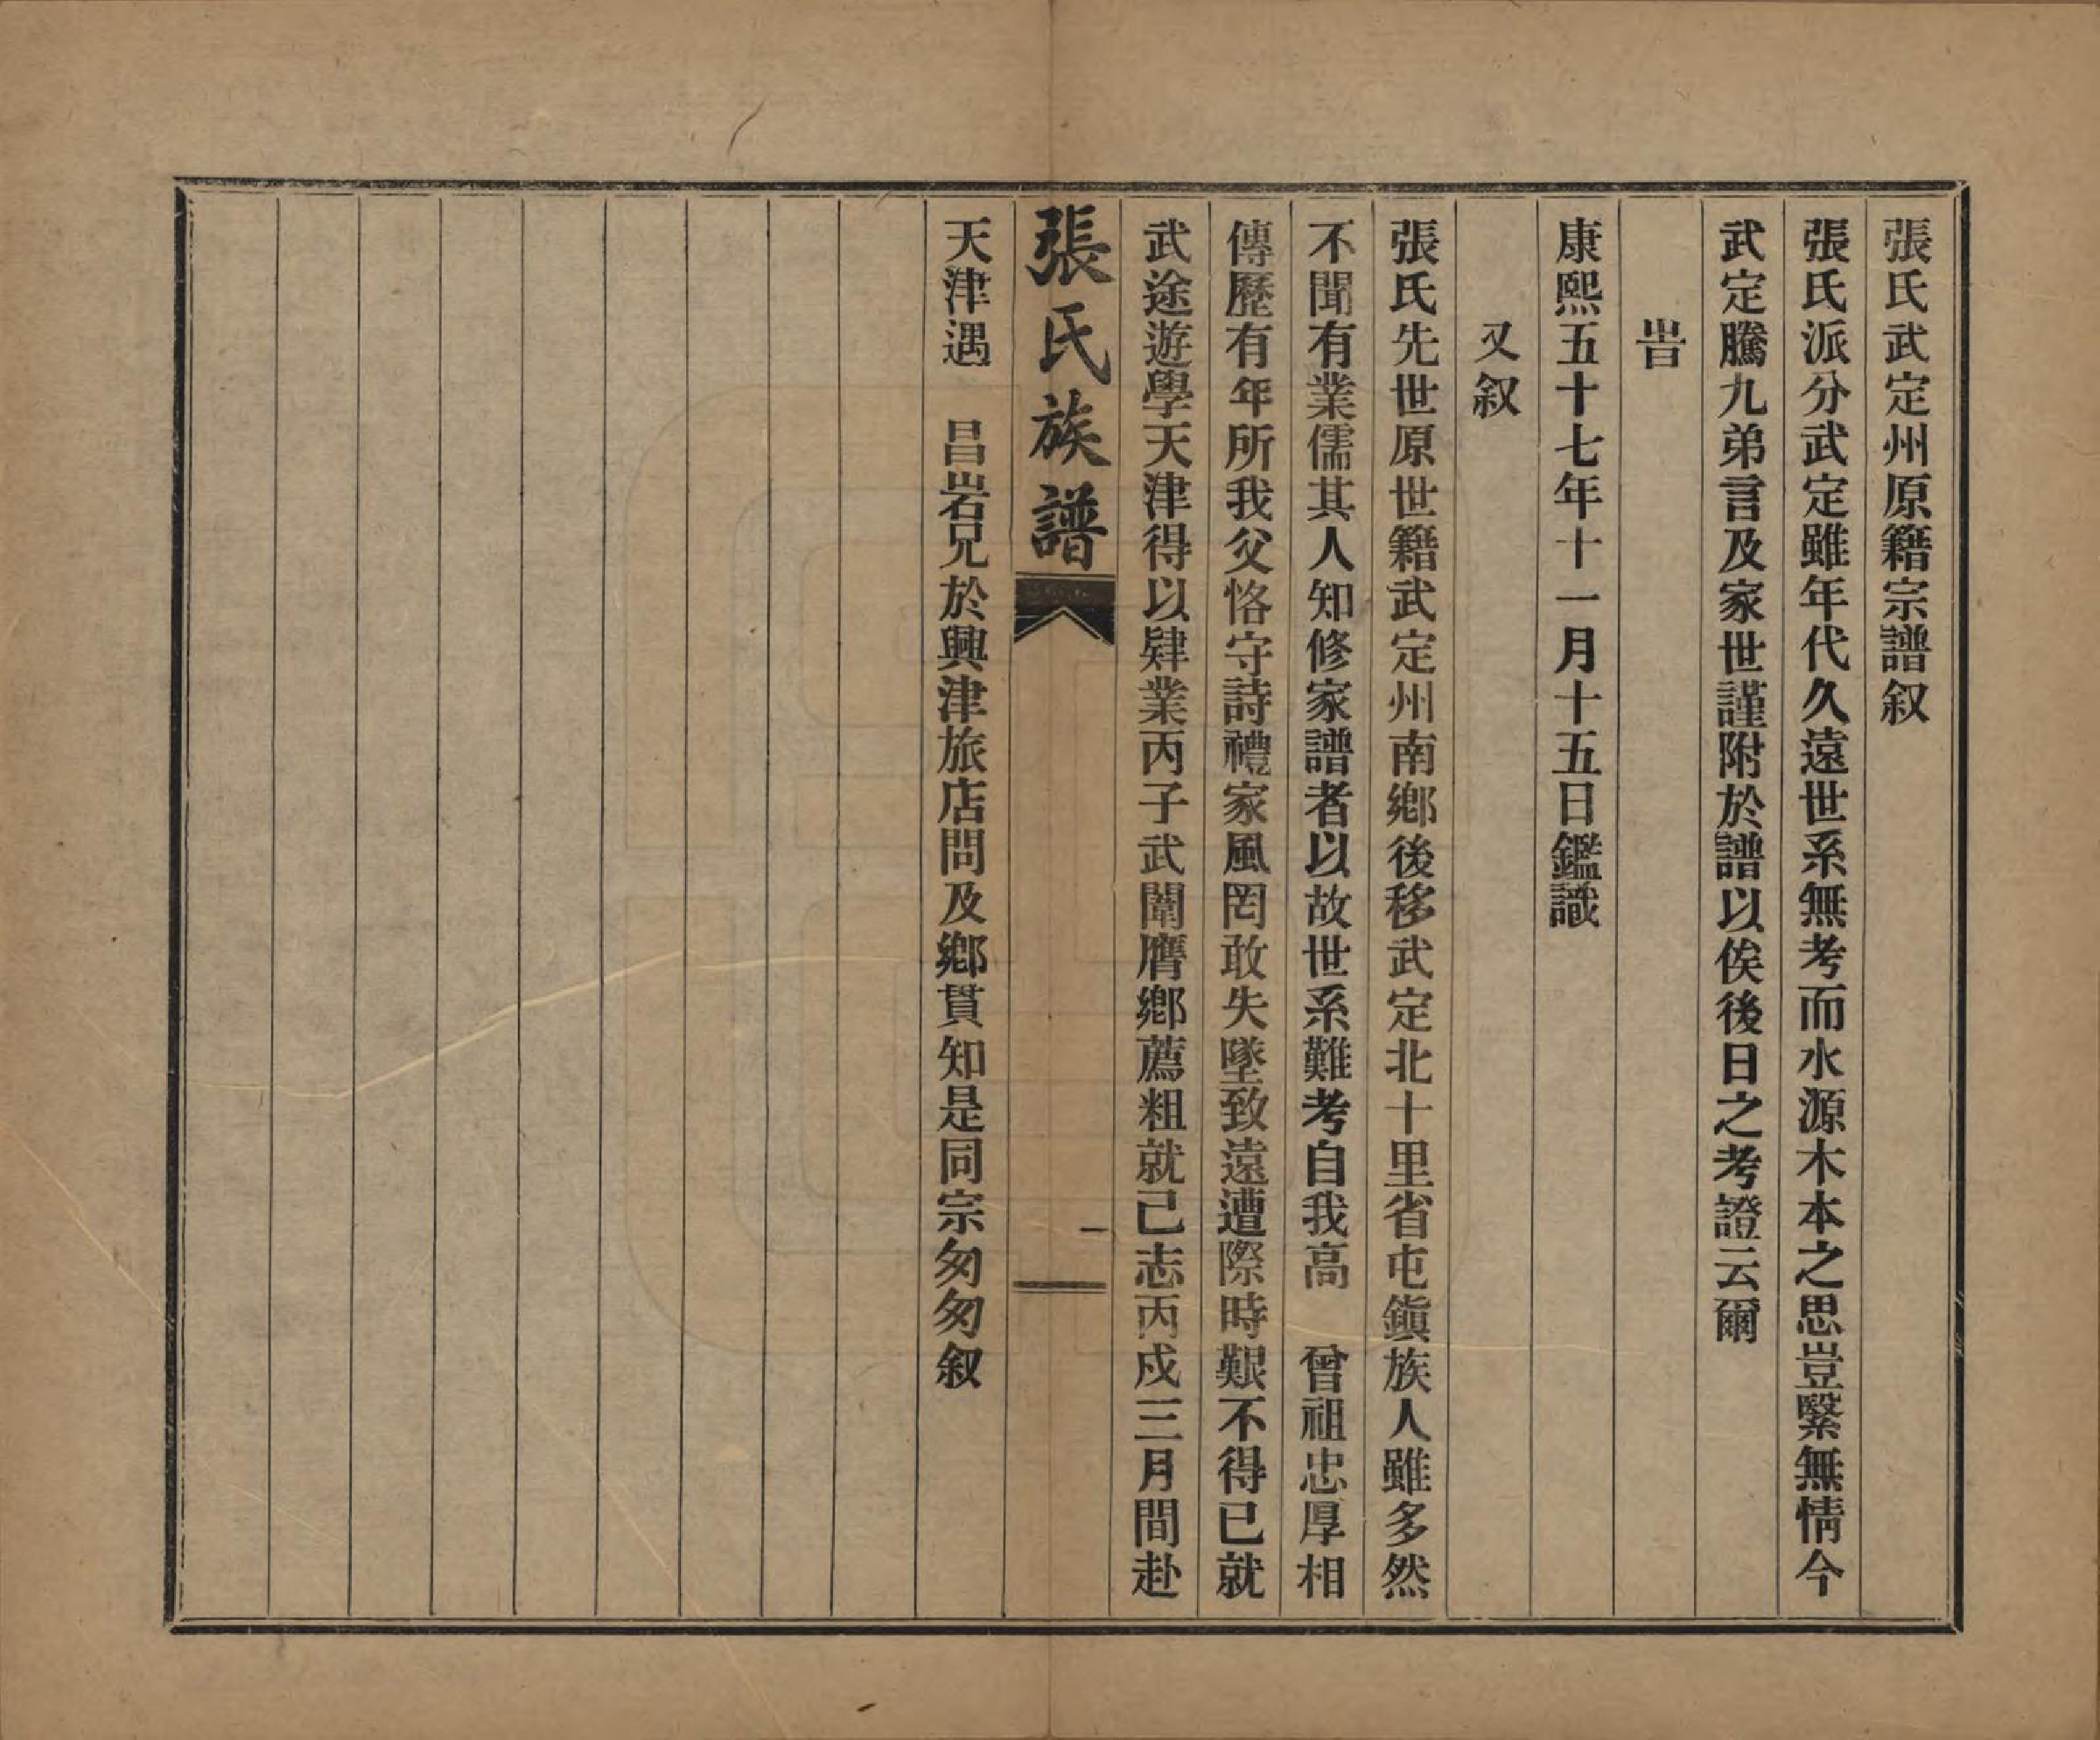 張氏武定州原籍宗譜叙
張氏派分武定雖年代久遠世系無考而水源木本之思豈繄無情今
武定騰九弟言及家世謹附於譜以俟後日之考證云爾
旹
康熙五十七年十一月十五日鑑識
又叙
張氏先世原世籍武定州南鄉後移武定北十里省屯鎭族人雖多然
不聞有業儒其人知修家譜者以故世系難考自我高　曾祖忠厚相
傳歷有年所我父恪守詩禮家風罔敢失墜致遠遭際時艱不得已就
武途遊學天津得以肄業丙子武闈膺鄉薦粗就己志丙戍三月間赴
張氏族譜
一
天津遇　昌岩兄於興津旅店問及鄉貫知是同宗匆匆叙